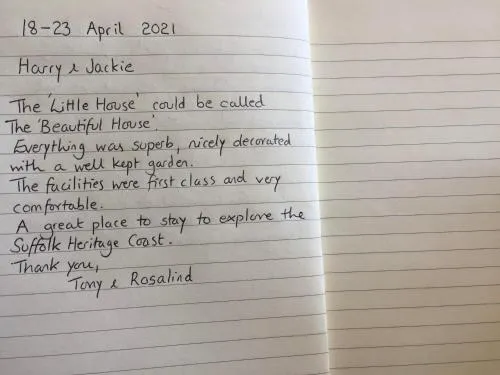 18-23 April 2021
Harry & Jackie
The 'Little House' could be called
The 'Beautiful House'.
Everything was superb, nicely decorated
with a well kept garden.
The facilities were first class and very
comfortable.
A great place to stay to explore the
Suffolk Heritage Coast.
Thank you,
Tony & Rosalind